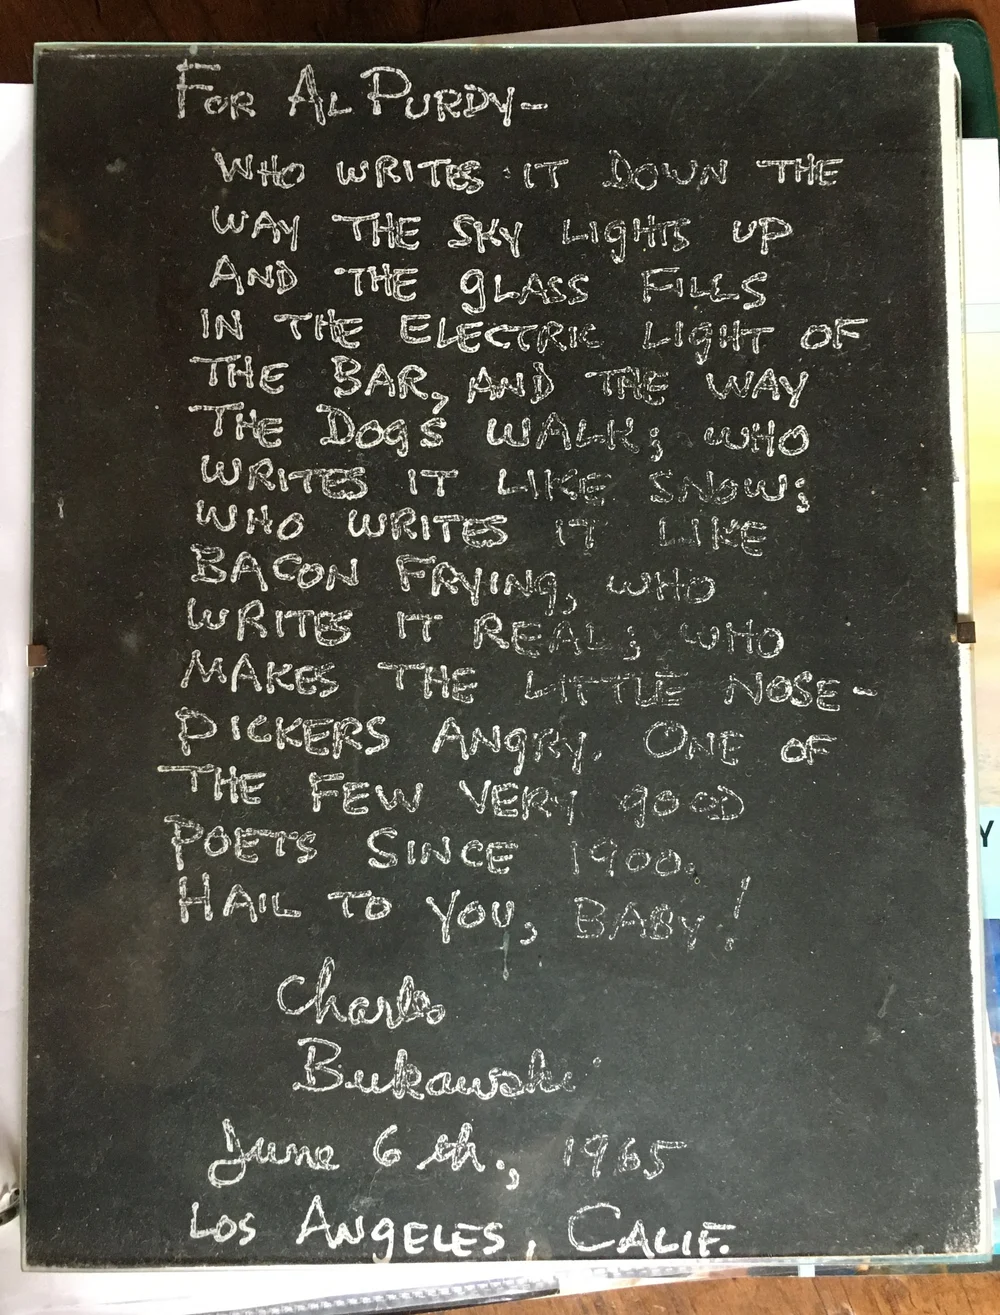 For Al Purdy-
WHO WRITES IT DOWN THE
WAY THE SKY LIGHTS UP
AND THE gLASS FILLS
IN THE ELECTRIC LIGHT OF
THE BAR, AND THE WAY
THE DOGS WALK; WHO
WRITES IT LIKE SNOW;
WHO WRITES IT LIKE
BACON FRYING, WHO
WRITES IT REAL; WHO
MAKES THE LITTLE NOSE-
PICKERS ANGRY. ONE OF
THE FEW VERY gOOD
POETS SINCE 1900.
HAIL TO YOU, BABY!
Charles
Bukowski
June 6 th., 1965
LOS ANGELES, CALIF.
Y